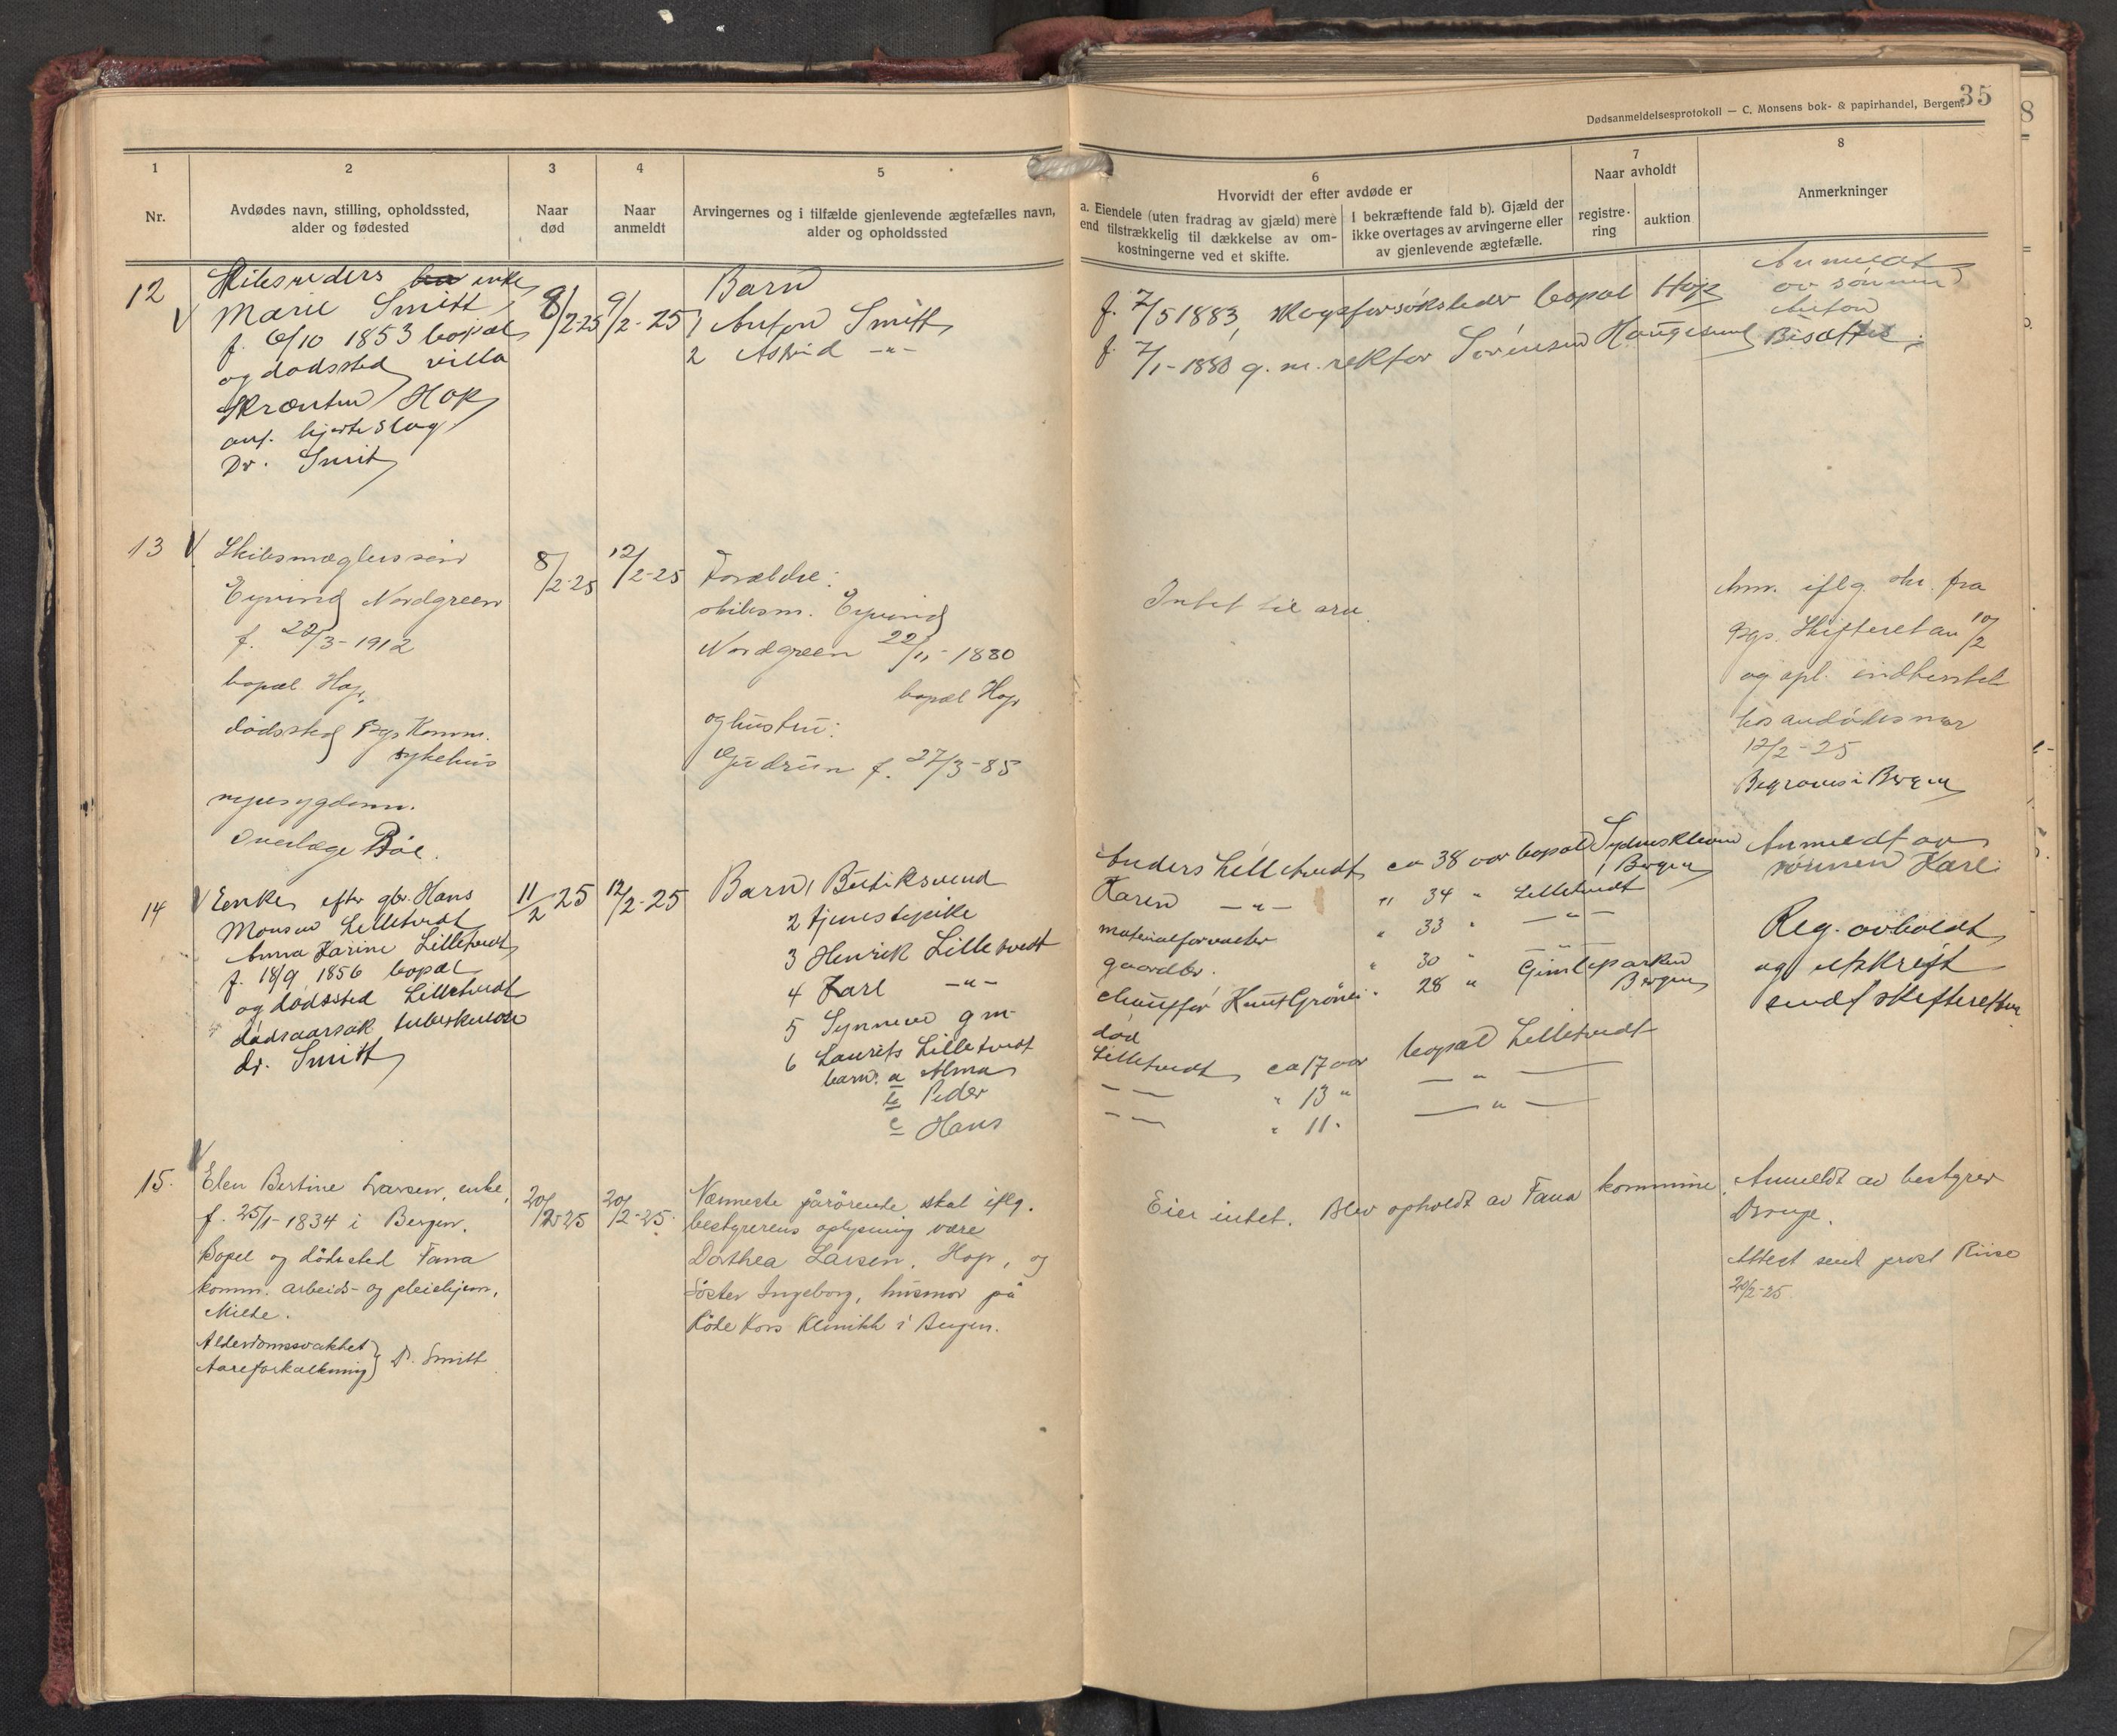 35
Dødsanmeldelsesprotokoll — C. Monsens bok- & papirhandel, Bergen.
1
Nr.
2
Avdødes navn, stilling, opholdssted,
alder og fødested
3
Naar
død
4
Naar
anmeldt
5
Arvingernes og i tilfælde gjenlevende ægtefælles navn,
alder og opholdssted
6
Hvorvidt der efter avdøde er
a. Eiendele (uten fradrag av gjæld) mere
end tilstrækkelig til dækkelse av om-
kostningerne ved et skifte.
I bekræftende fald b). Gjæld der
ikke overtages av arvingerne eller
av gjenlevende ægtefælle.
7
Naar avholdt
registre-
ring
auktion
8
Anmerkninger
12
Skibsreders enke
Marie Smitt
f. 6/10 1853 bopæl
og dødssted villa
Skrænten Hop
anf. hjerteslag
Dr. Smit
8/2-25
9/2-25
Barn
1 Anton Smitt
2 Astrid -"-
f. 7/5 1883, skogsforsøksleder bopæl Hop
f. 7/1-1880 g.m. rektor Sørensen Haugesund
Anmeldt
av sønnen
Anton
Bisættes.
13
Skibsmæglerssøn
Eyvind Nordgreen
f. 22/3-1912
bopæl Hop,
dødssted Bgs Komm.
sykehus
nyresygdom.
Overlæge Bøe.
8/2-25
12/2-25
Forældre:
skibsm. Eyvind
Nordgreen 22/11-1880
bopæl Hop
og hustru:
Gudrun f. 27/3-85
Intet til arv.
Anm. iflg. skr. fra
Bgs. Skifteret av 10/2
og opl. indhentet
hos avdødes mor
12/2-25
Begraves i Bergen
14
Enke efter gbr. Hans
Monsen Lilletvedt
Anna Karine Lilletvedt
f. 18/9 1856 bopæl
og dødssted Lilletvedt
dødsaarsak tuberkulose
dr. Smitt
11/2 25
12/2-25
Barn 1 Butiksvend
2 tjenestepike
3 Henrik Lilletvedt
4 Karl -"-
5 Synneve g m
6 Laurits Lilletvedt
barn: a Alma
b Peder
c Hans
Anders Lilletvedt ca 38 aar bopæl Sydneskleven
i Bergen
Karen -"- " 34 " Lilletvedt
materialforvalter " 33 " -"-
gaardbr. " 30 "
chauffør Knut Grønei " 28 " Gimleparken
Bergen
død
Lilletvedt ca 17 aar bopæl Lilletvedt
-- " 13 " -"-
-- " 11 " -"-
Anmeldt av
sønnen Karl.
Reg. avholdt
og utskrift
sendt skifteretten
15.
Elen Bertine Larsen, enke,
f. 25/1-1834 i Bergen.
Bopel og dødssted Fana
komm. arbeids- og pleiehjem,
Milde.
Alderdomssvakhet
Aareforkalkning } Dr. Smitt
20/2-25
20/2-25.
Nærmeste pårørende skal iflg.
bestyrerens oplysning være
Dorthea Larsen, Hop, og
søster Ingeborg, husmor på
Røde Kors Klinikk i Bergen.
Eier intet. Blev opholdt av Fana kommune.
Anmeldt av bestyrer
Drange.
Attest send prost Riise
20/2-25